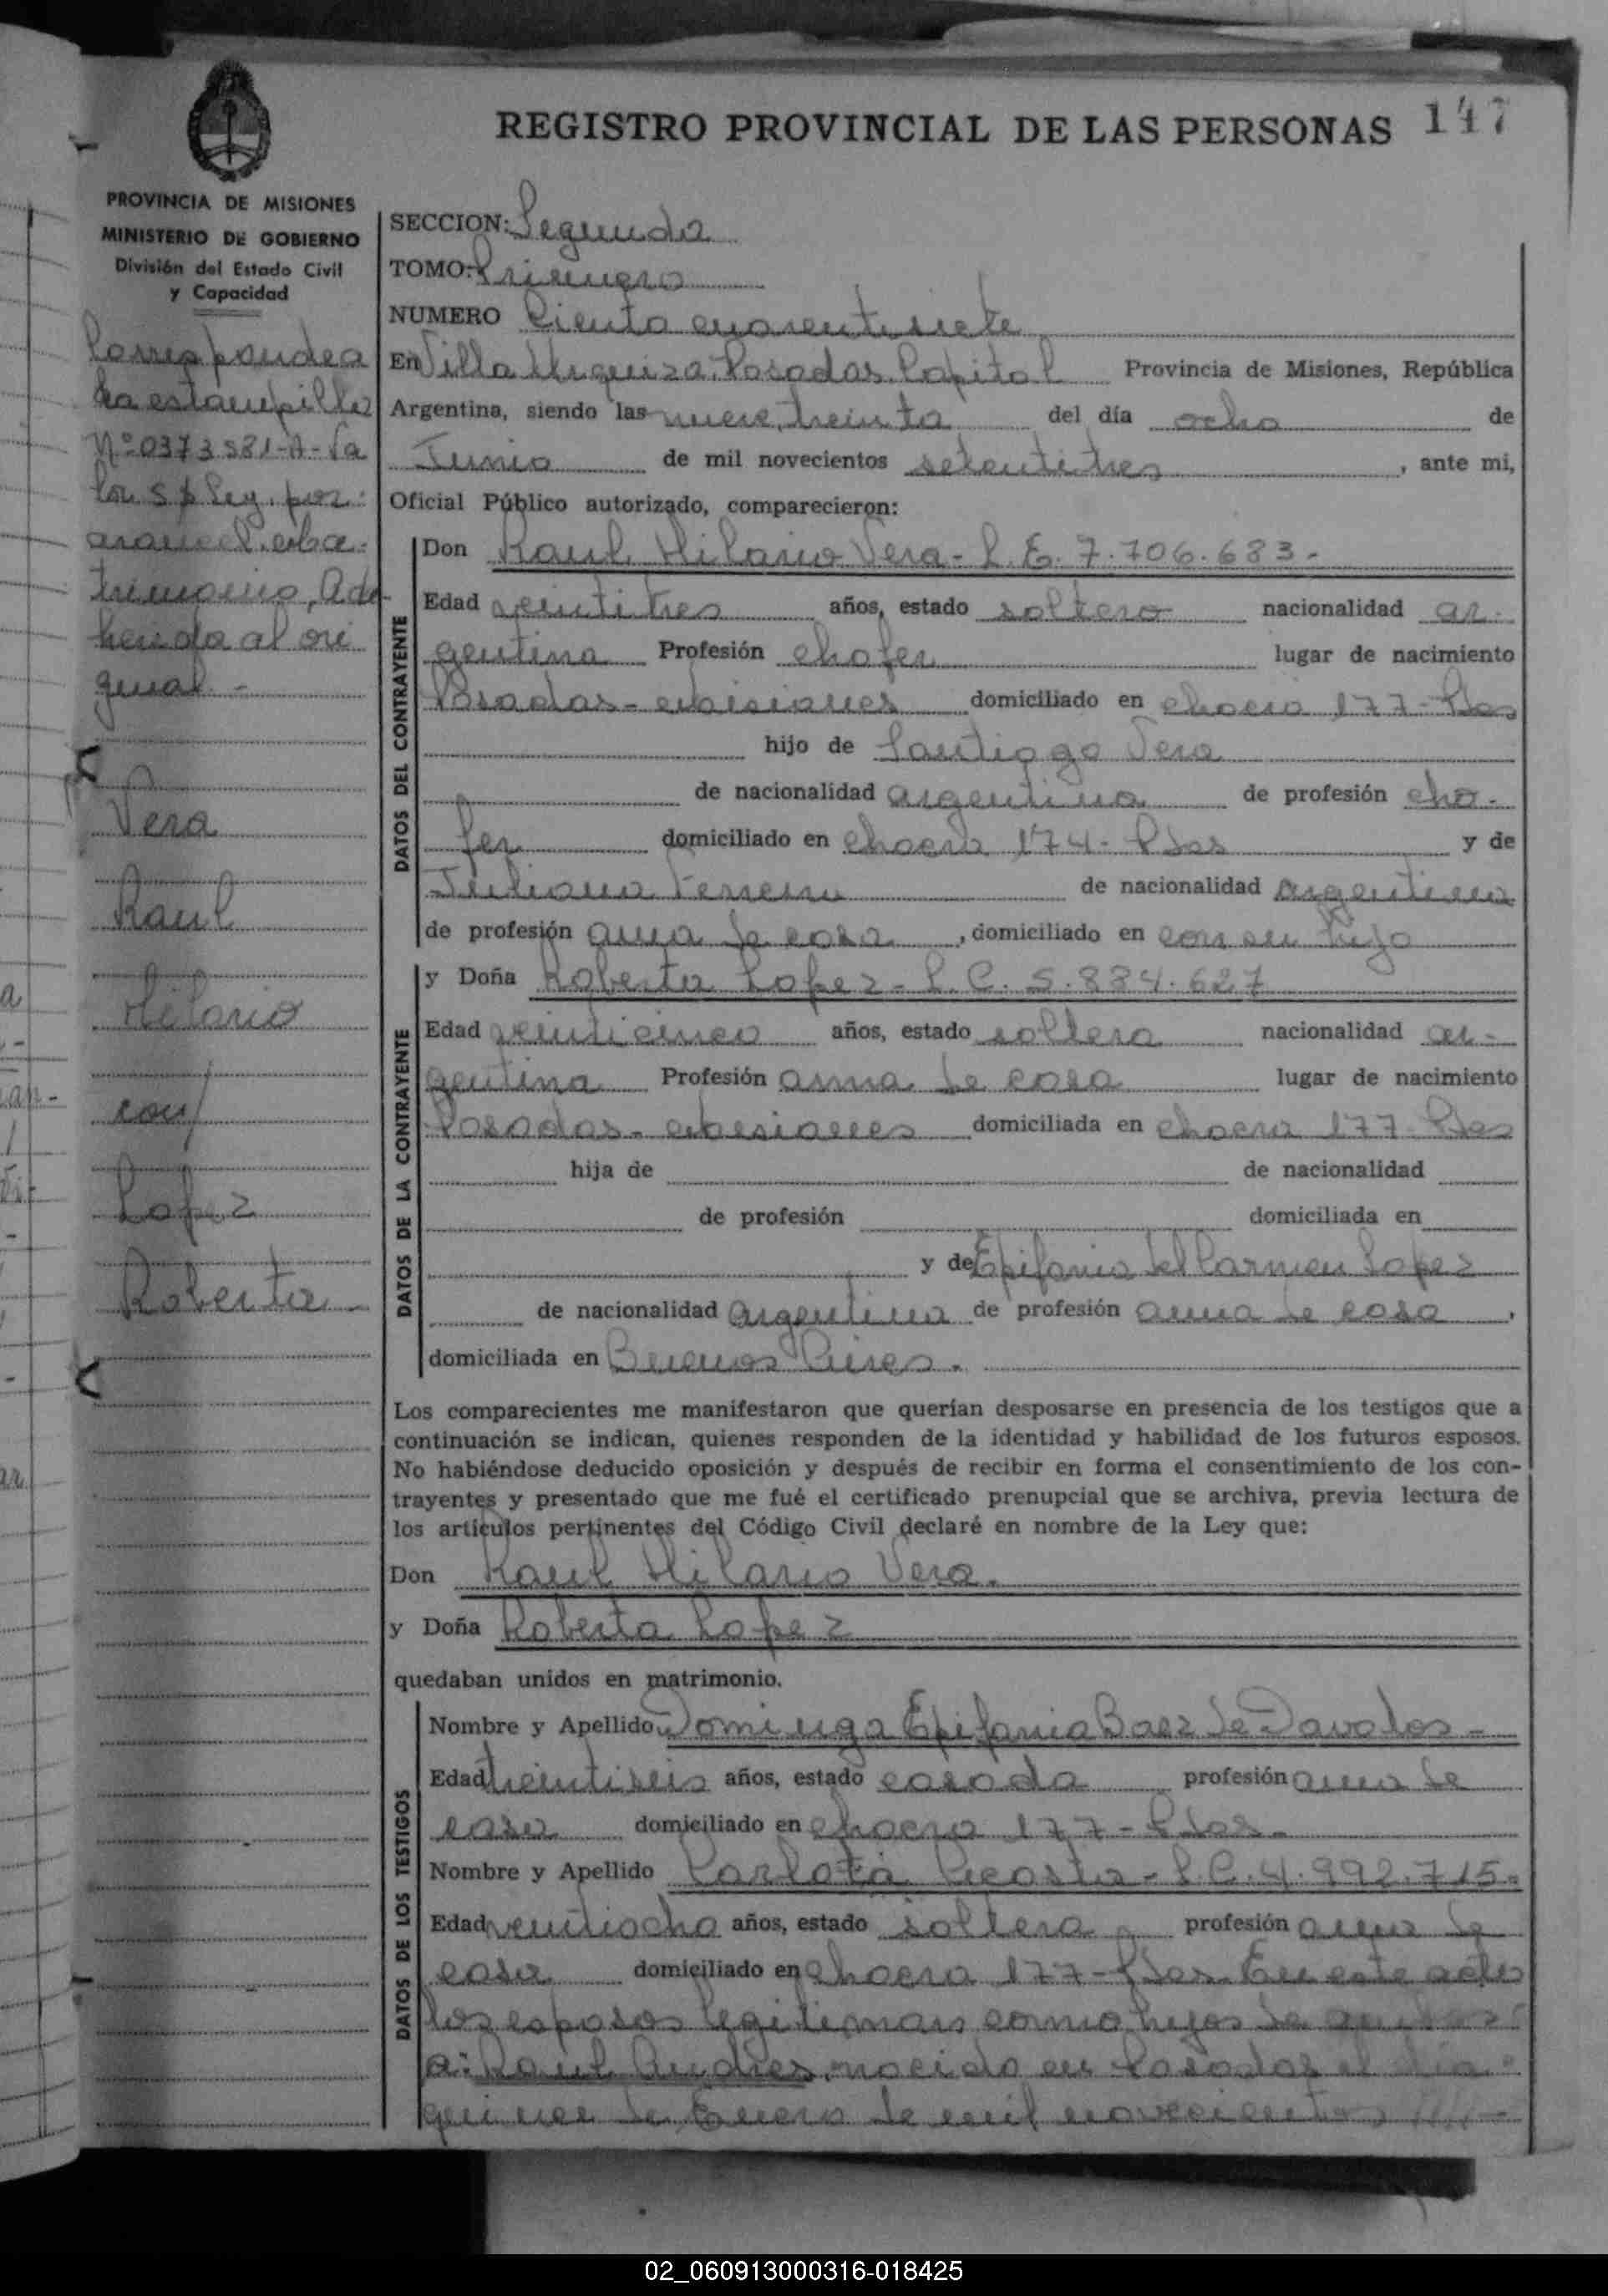 REGISTRO PROVINCIAL DE LAS PERSONAS 147
PROVINCIA DE MISIONES
MINISTERIO DE GOBIERNO
División del Estado Civil
y Capacidad
Corresponde a
la estampilla
Nº 0373581-A- Va
lor 5 $ Ley. por
arancel. Ma-
trimonio, Ad
herida al ori
ginal -
Vera
Raul
Hilario
con/
Lopez
Roberta
SECCION: Segunda
TOMO: Primero
NUMERO Ciento cuarentisiete
En Villa Urquiza, Posadas, Capital Provincia de Misiones, República
Argentina, siendo las nueve, treinta del día ocho de
Junio de mil novecientos setentitres, ante mi,
Oficial Público autorizado, comparecieron:
DATOS DEL CONTRAYENTE
Don Raul Hilario Vera - L.E. 7.706.683.-
Edad veintitres años, estado soltero nacionalidad ar-
gentina Profesión chofer lugar de nacimiento
Posadas - Misiones domiciliado en chacra 177 - Pdas
hijo de Santiago Vera
de nacionalidad argentina de profesión cho-
fer domiciliado en chacra 174 - Pdas y de
Juliana Ferreira de nacionalidad argentina
de profesión ama de casa, domiciliado en con su hijo
DATOS DE LA CONTRAYENTE
y Doña Roberta Lopez - L.C. 5.884.627
Edad veinticinco años, estado soltera nacionalidad ar-
gentina Profesión ama de casa lugar de nacimiento
Posadas - Misiones domiciliada en chacra 177 - Pdas
hija de de nacionalidad
de profesión domiciliada en
y de Epifania del Carmen Lopez
de nacionalidad argentina de profesión ama de casa,
domiciliada en Buenos Aires.
Los comparecientes me manifestaron que querían desposarse en presencia de los testigos que a
continuación se indican, quienes responden de la identidad y habilidad de los futuros esposos.
No habiéndose deducido oposición y después de recibir en forma el consentimiento de los con-
trayentes y presentado que me fué el certificado prenupcial que se archiva, previa lectura de
los artículos pertinentes del Código Civil declaré en nombre de la Ley que:
Don Raul Hilario Vera.
y Doña Roberta Lopez
quedaban unidos en matrimonio.
DATOS DE LOS TESTIGOS
Nombre y Apellido Dominga Epifania Baez de Davalos -
Edad treintiseis años, estado casada profesión ama de
casa domiciliado en chacra 177 - Pdas -
Nombre y Apellido Carlota Acosta - L.C. 4.992.715.
Edad veintiocho años, estado soltera profesión ama de
casa domiciliado en chacra 177 - Pdas. En este acto
los esposos legitiman como hijos de ambos
a: Raul Andres, nacido en Posadas el dia
quince de Enero de mil novecientos
02_060913000316-018425